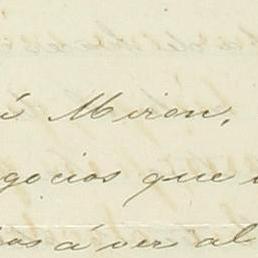 é Miron,
gocios que
os á ver al